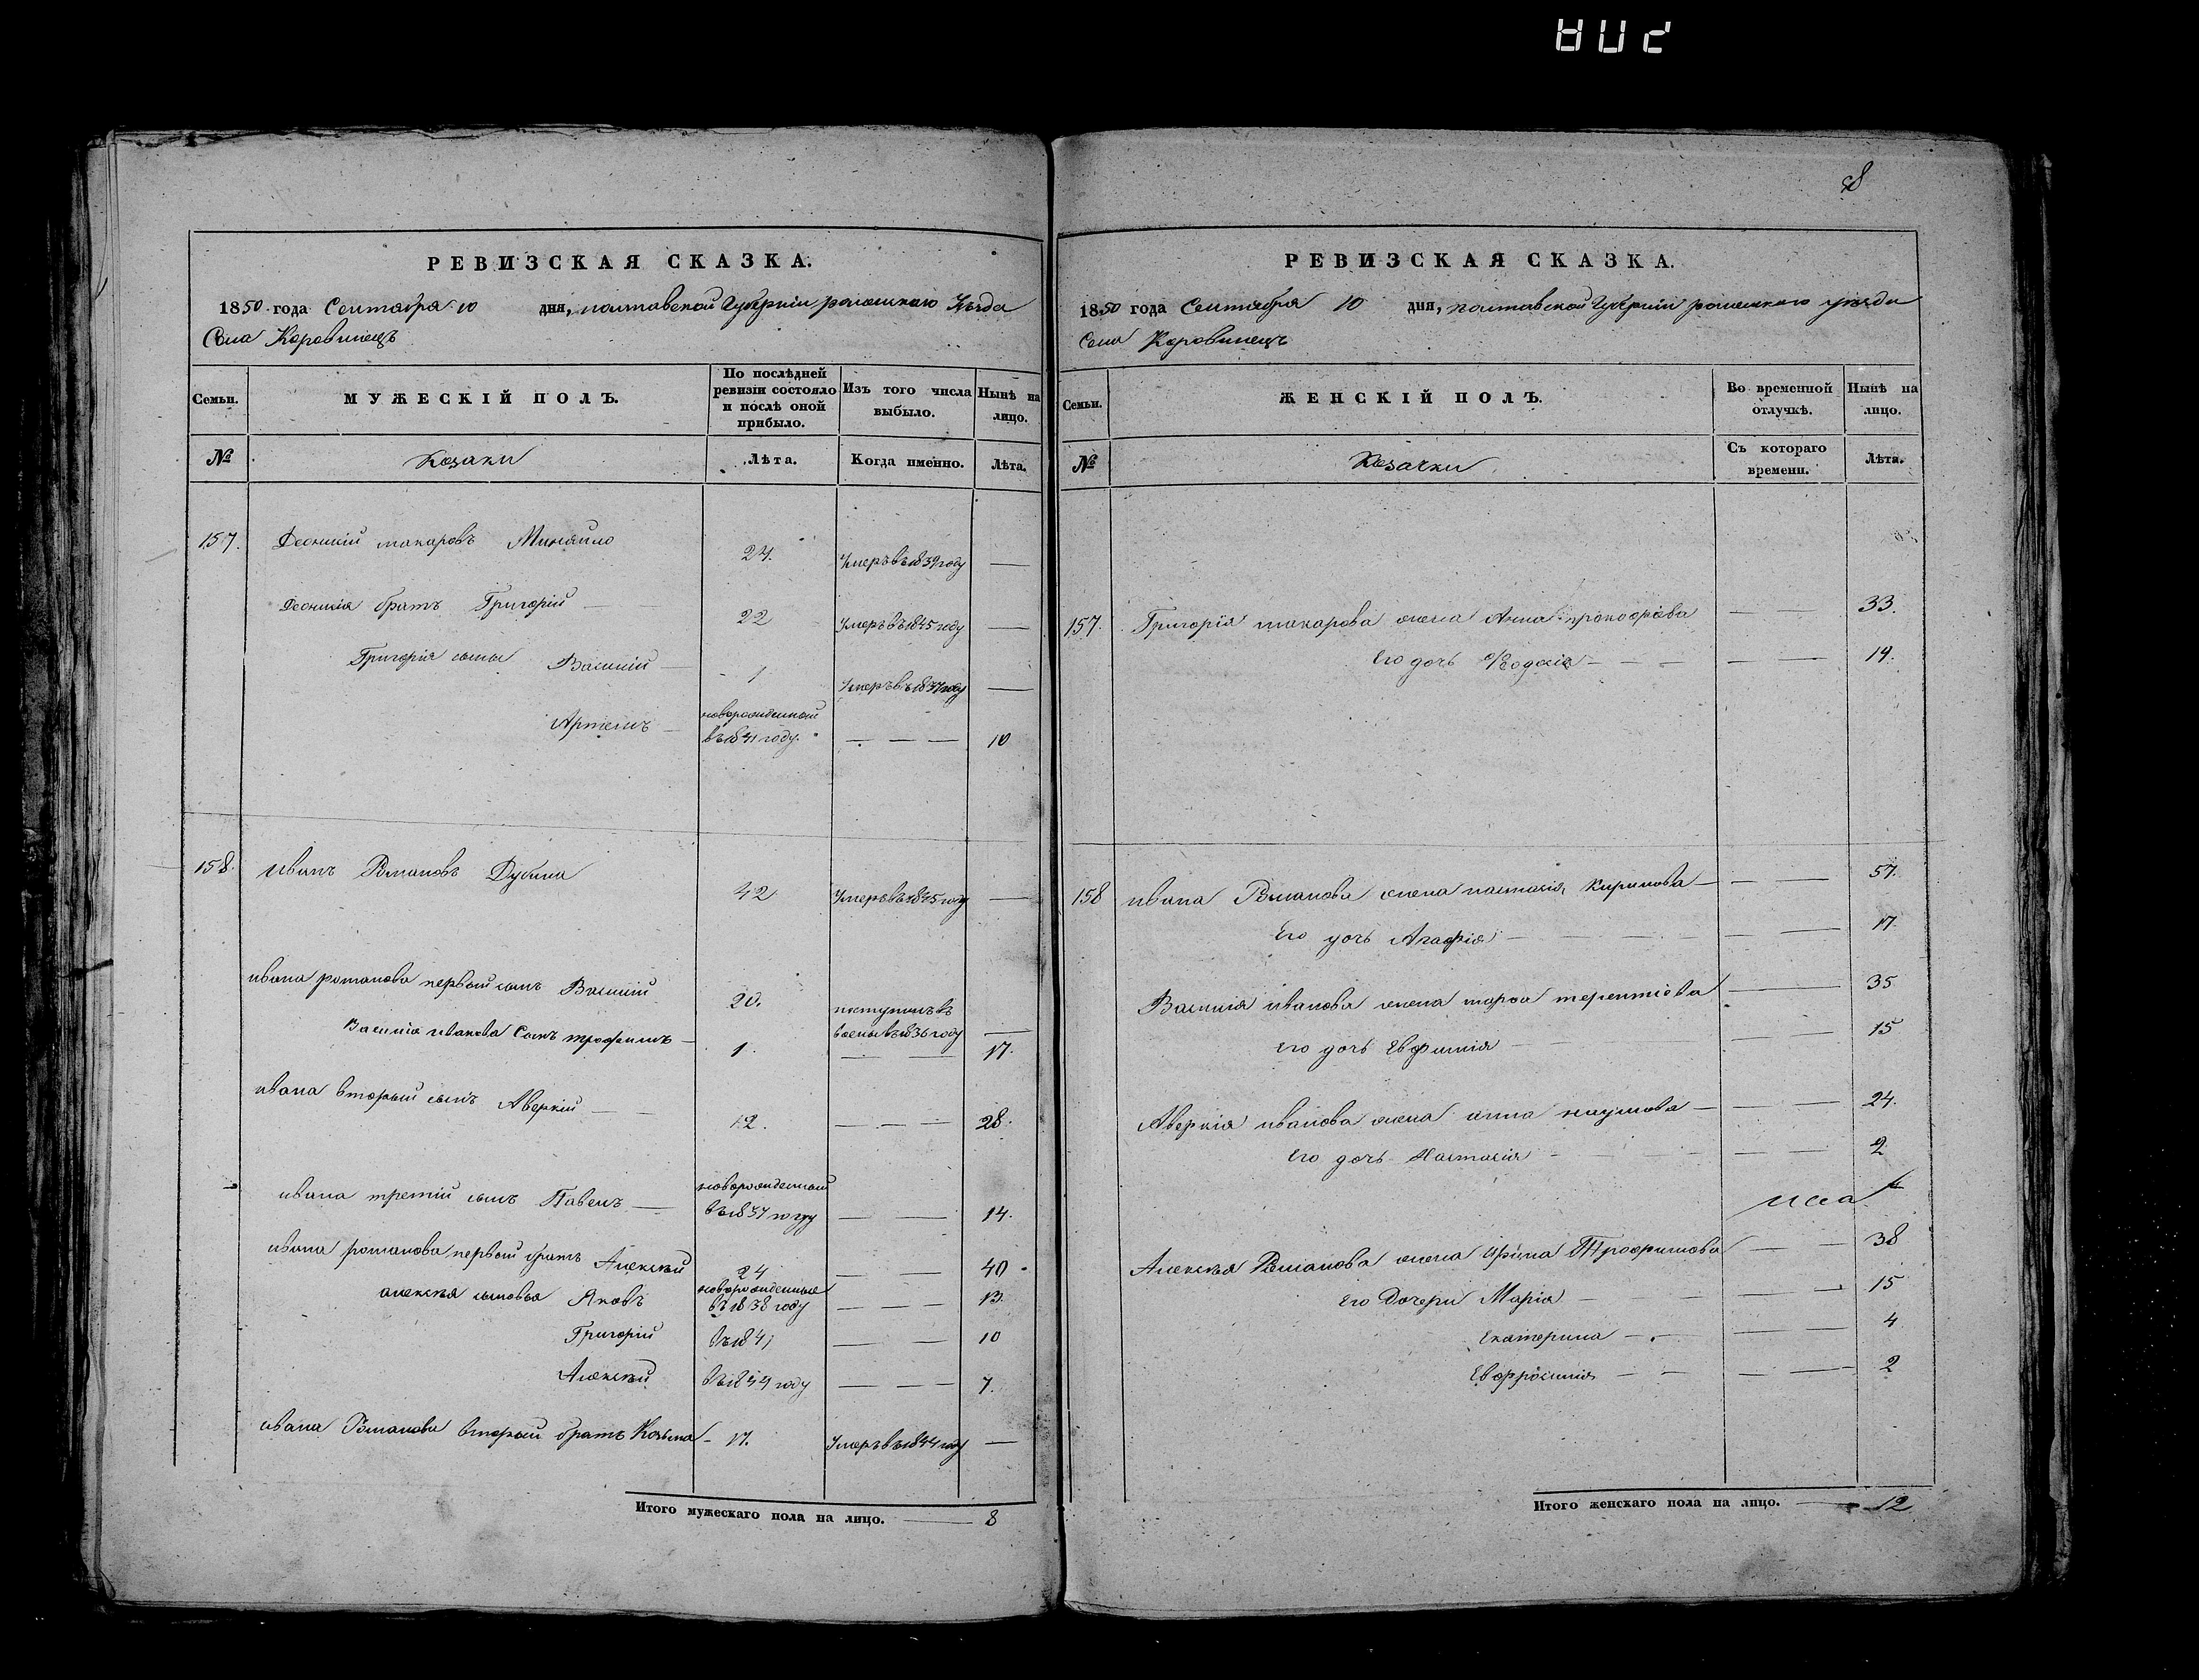 8
РЕВИЗСКАЯ СКАЗКА.
1850 года Сентября 10 дня, полтавской Губерніи роменскаго Уезда
Села Коровинецъ
Семьи. МУЖЕСКІЙ ПОЛЪ. По послѣдней ревизіи состояло и послѣ оной прибыло. Изъ того числа выбыло. Нынѣ на лицо.
№ Козаки Лѣта. Когда именно. Лѣта.
157. Леонтій макаровъ 24. Умеръ въ 1839 году —
братъ Григорій — 22 Умеръ въ 1845 году —
Григорія сыны Василій — 1 Умеръ въ 1837 году —
Артемъ — новорожденный
въ 1841 году. — — — 10
158. иванъ Романовъ Дубина 42 Умеръ въ 1845 году —
ивана романова первый сынъ Василій 20. поступилъ в
въ 1836 году —
Василія иванова Сынъ трофимъ — 1. — — 17.
ивана вторый сынъ Аверкій — — 12. — — — 28.
ивана третій сынъ Павелъ — новорожденный
въ 1837 году — — 14.
ивана романова первый братъ Алексѣй 24 — — 40
алексѣя сыновья Яковъ новорожденные
въ 1838 году — — — 13.
Григорій въ 1841 — — 10
Алексѣй въ 1844 году — — — 7.
ивана Романова вторый братъ Козьма — 17. Умеръ въ 1844 году —
Итого мужескаго пола на лицо. — 8
РЕВИЗСКАЯ СКАЗКА.
1850 года Сентября 10 дня, полтавской Губерніи роменскаго уѣзда
Села Коровинецъ
Семьи. ЖЕНСКІЙ ПОЛЪ. Во временной отлучкѣ. Нынѣ на лицо.
№ Козачки Съ котораго времени. Лѣта.
157. Григорія макарова жена Анна прокофіева — — 33.
Его дочь Феодосія — — — — — 14.
158 ивана Романова жена настасія кирилова — — — 57.
Его дочь Агафія — — — — — 17.
Василія иванова жена марфа терентіева — 35
Его дочь Евфимія — — — — 15
Аверкія иванова жена анна наумова — — — 24.
Его дочь Настасія — — — — 2
Алексѣя Романова жена Ирина Трофимова — — 38
Его Дочери Марія — — — — 15
Екатерина — — — 4
Евфросинія — — — — 2
Итого женскаго пола на лицо. — 12